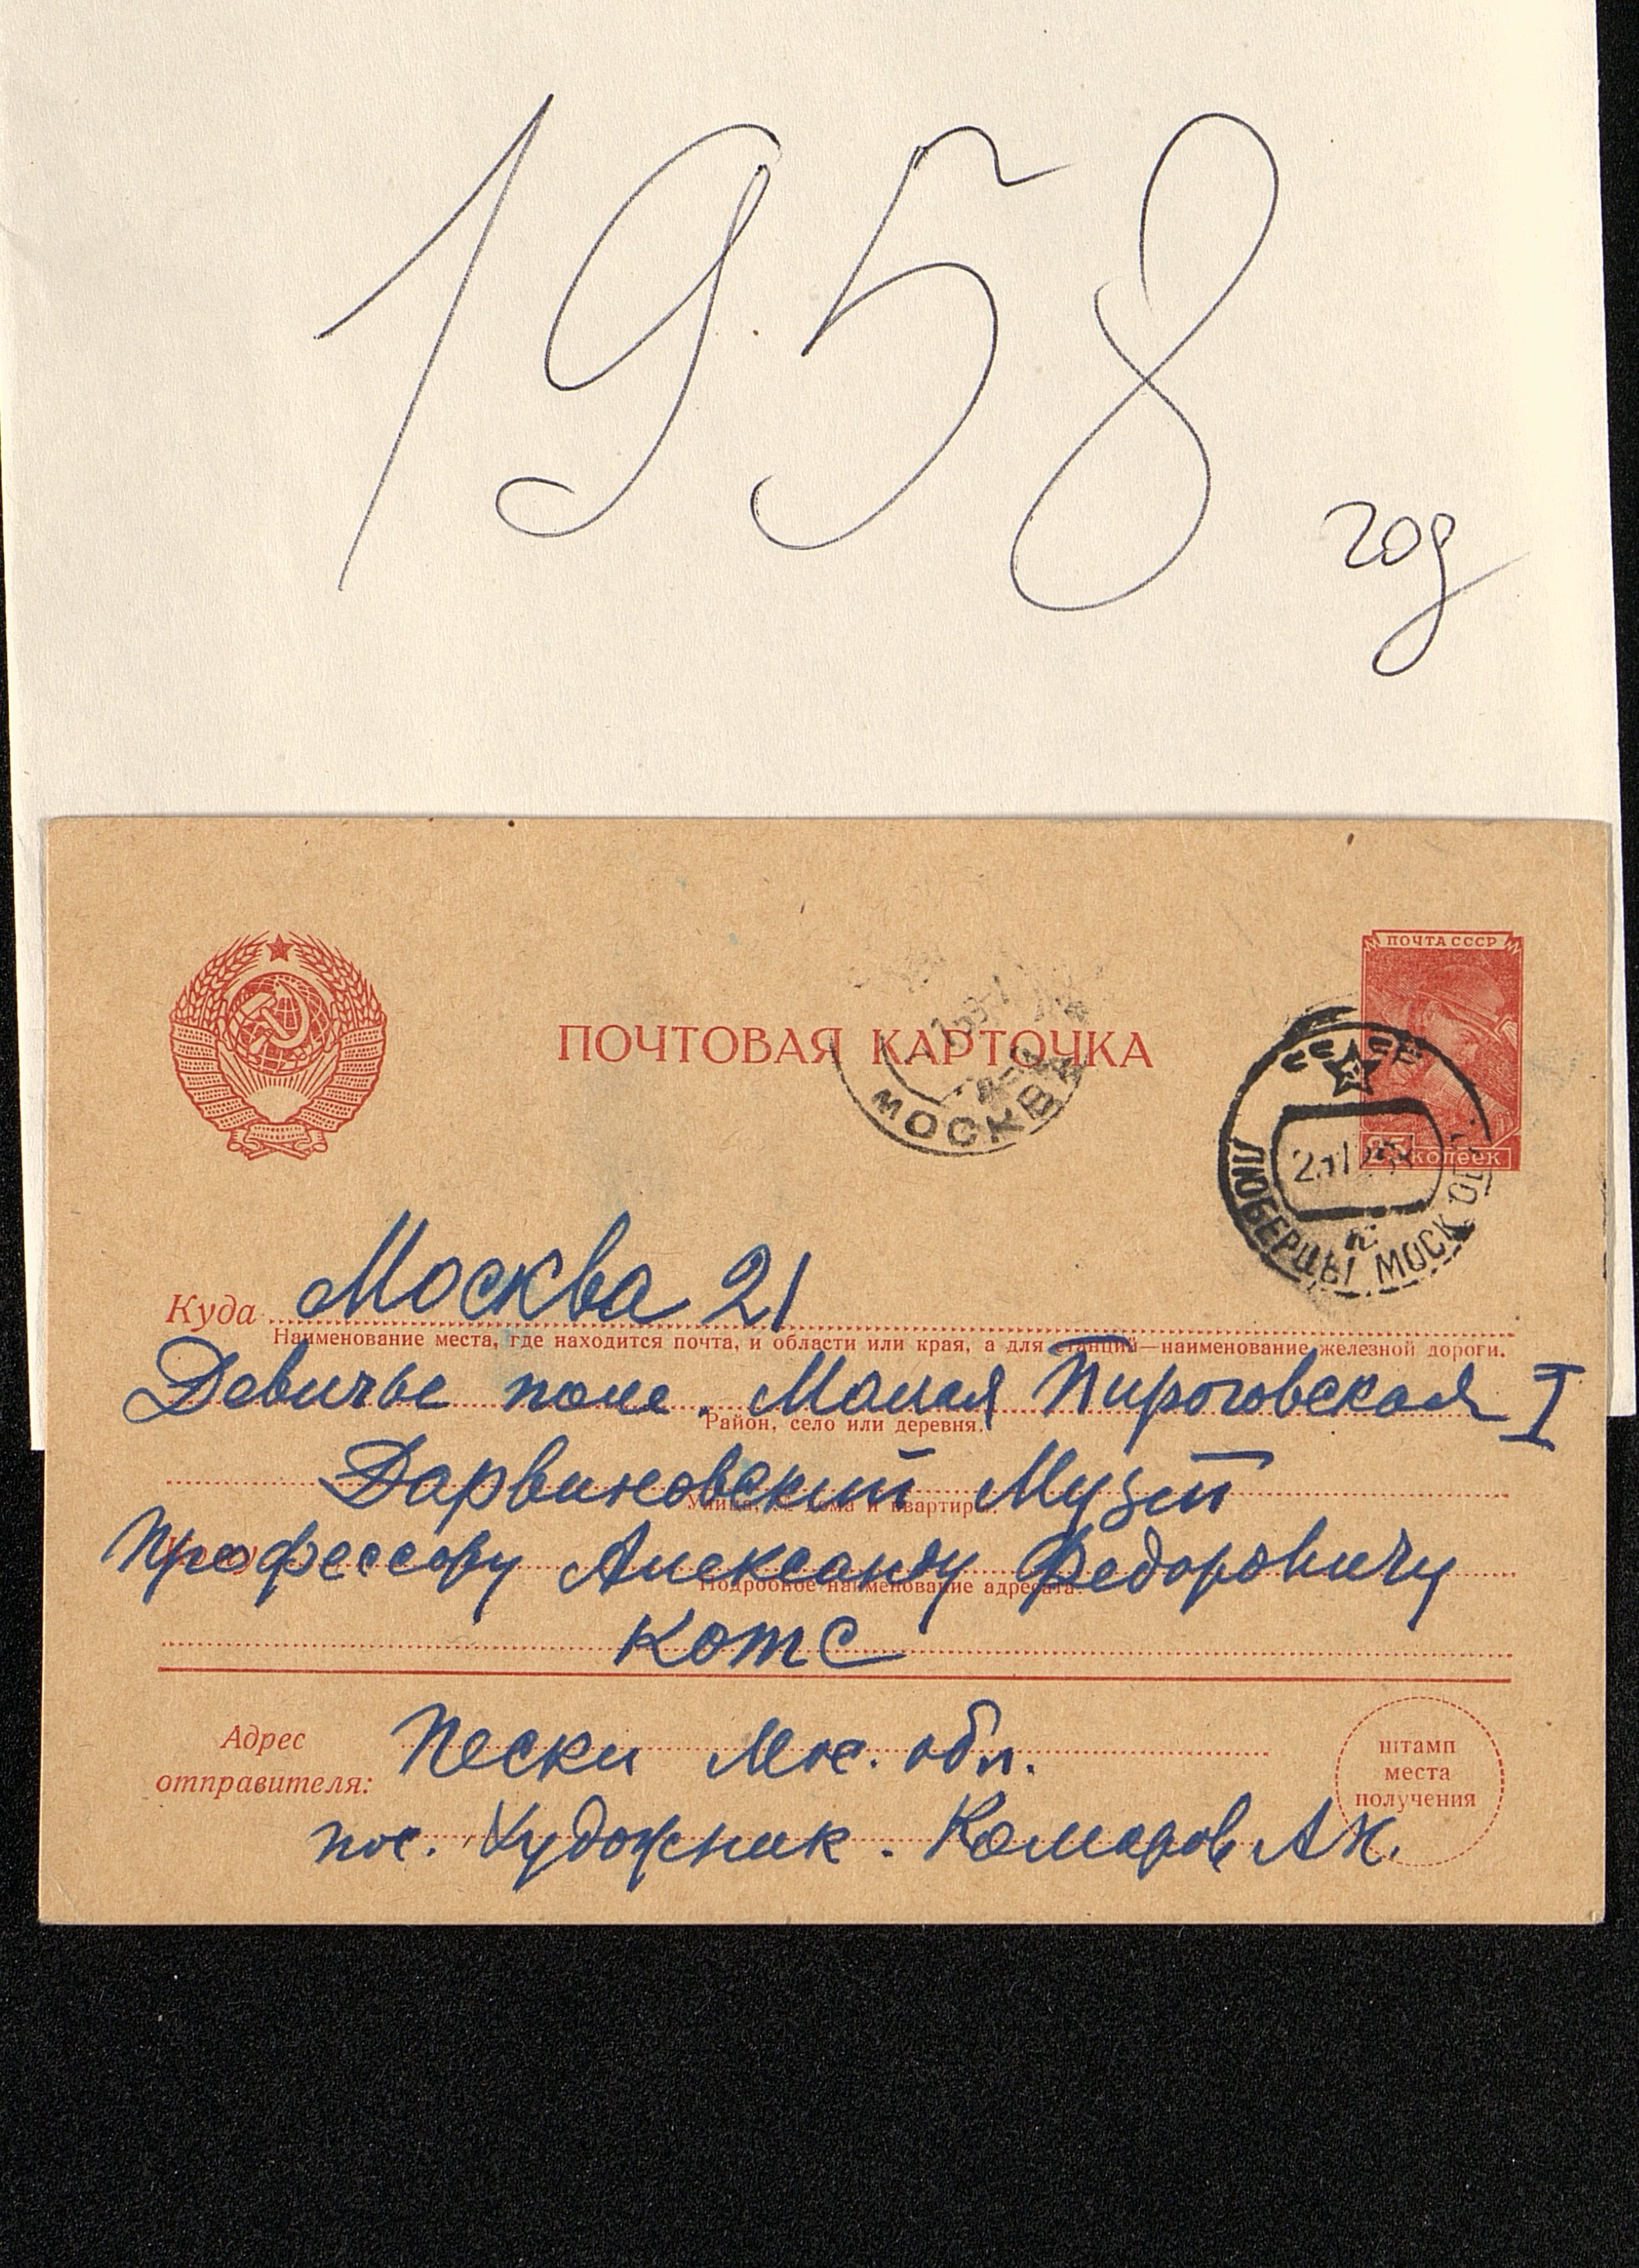 1958 год
ПОЧТОВАЯ КАРТОЧКА
ПОЧТА СССР
25 копеек
МОСКВА
СССР
ЛЮБЕРЦЫ МОСК. ОБЛ.
Куда Москва 21
Наименование места, где находится почта, и области или края, а для станций—наименование железной дороги.
Девичье поле. Малая Пироговская I
Район, село или деревня.
Дарвиновский Музей
Улица, № дома и квартиры.
Кому Профессору Александу Федоровичу
Подробное наименование адресата.
Котс
Адрес отправителя: Пески Мос. обл.
пос. Художник. Комаров А.Н.
штамп
места
получения